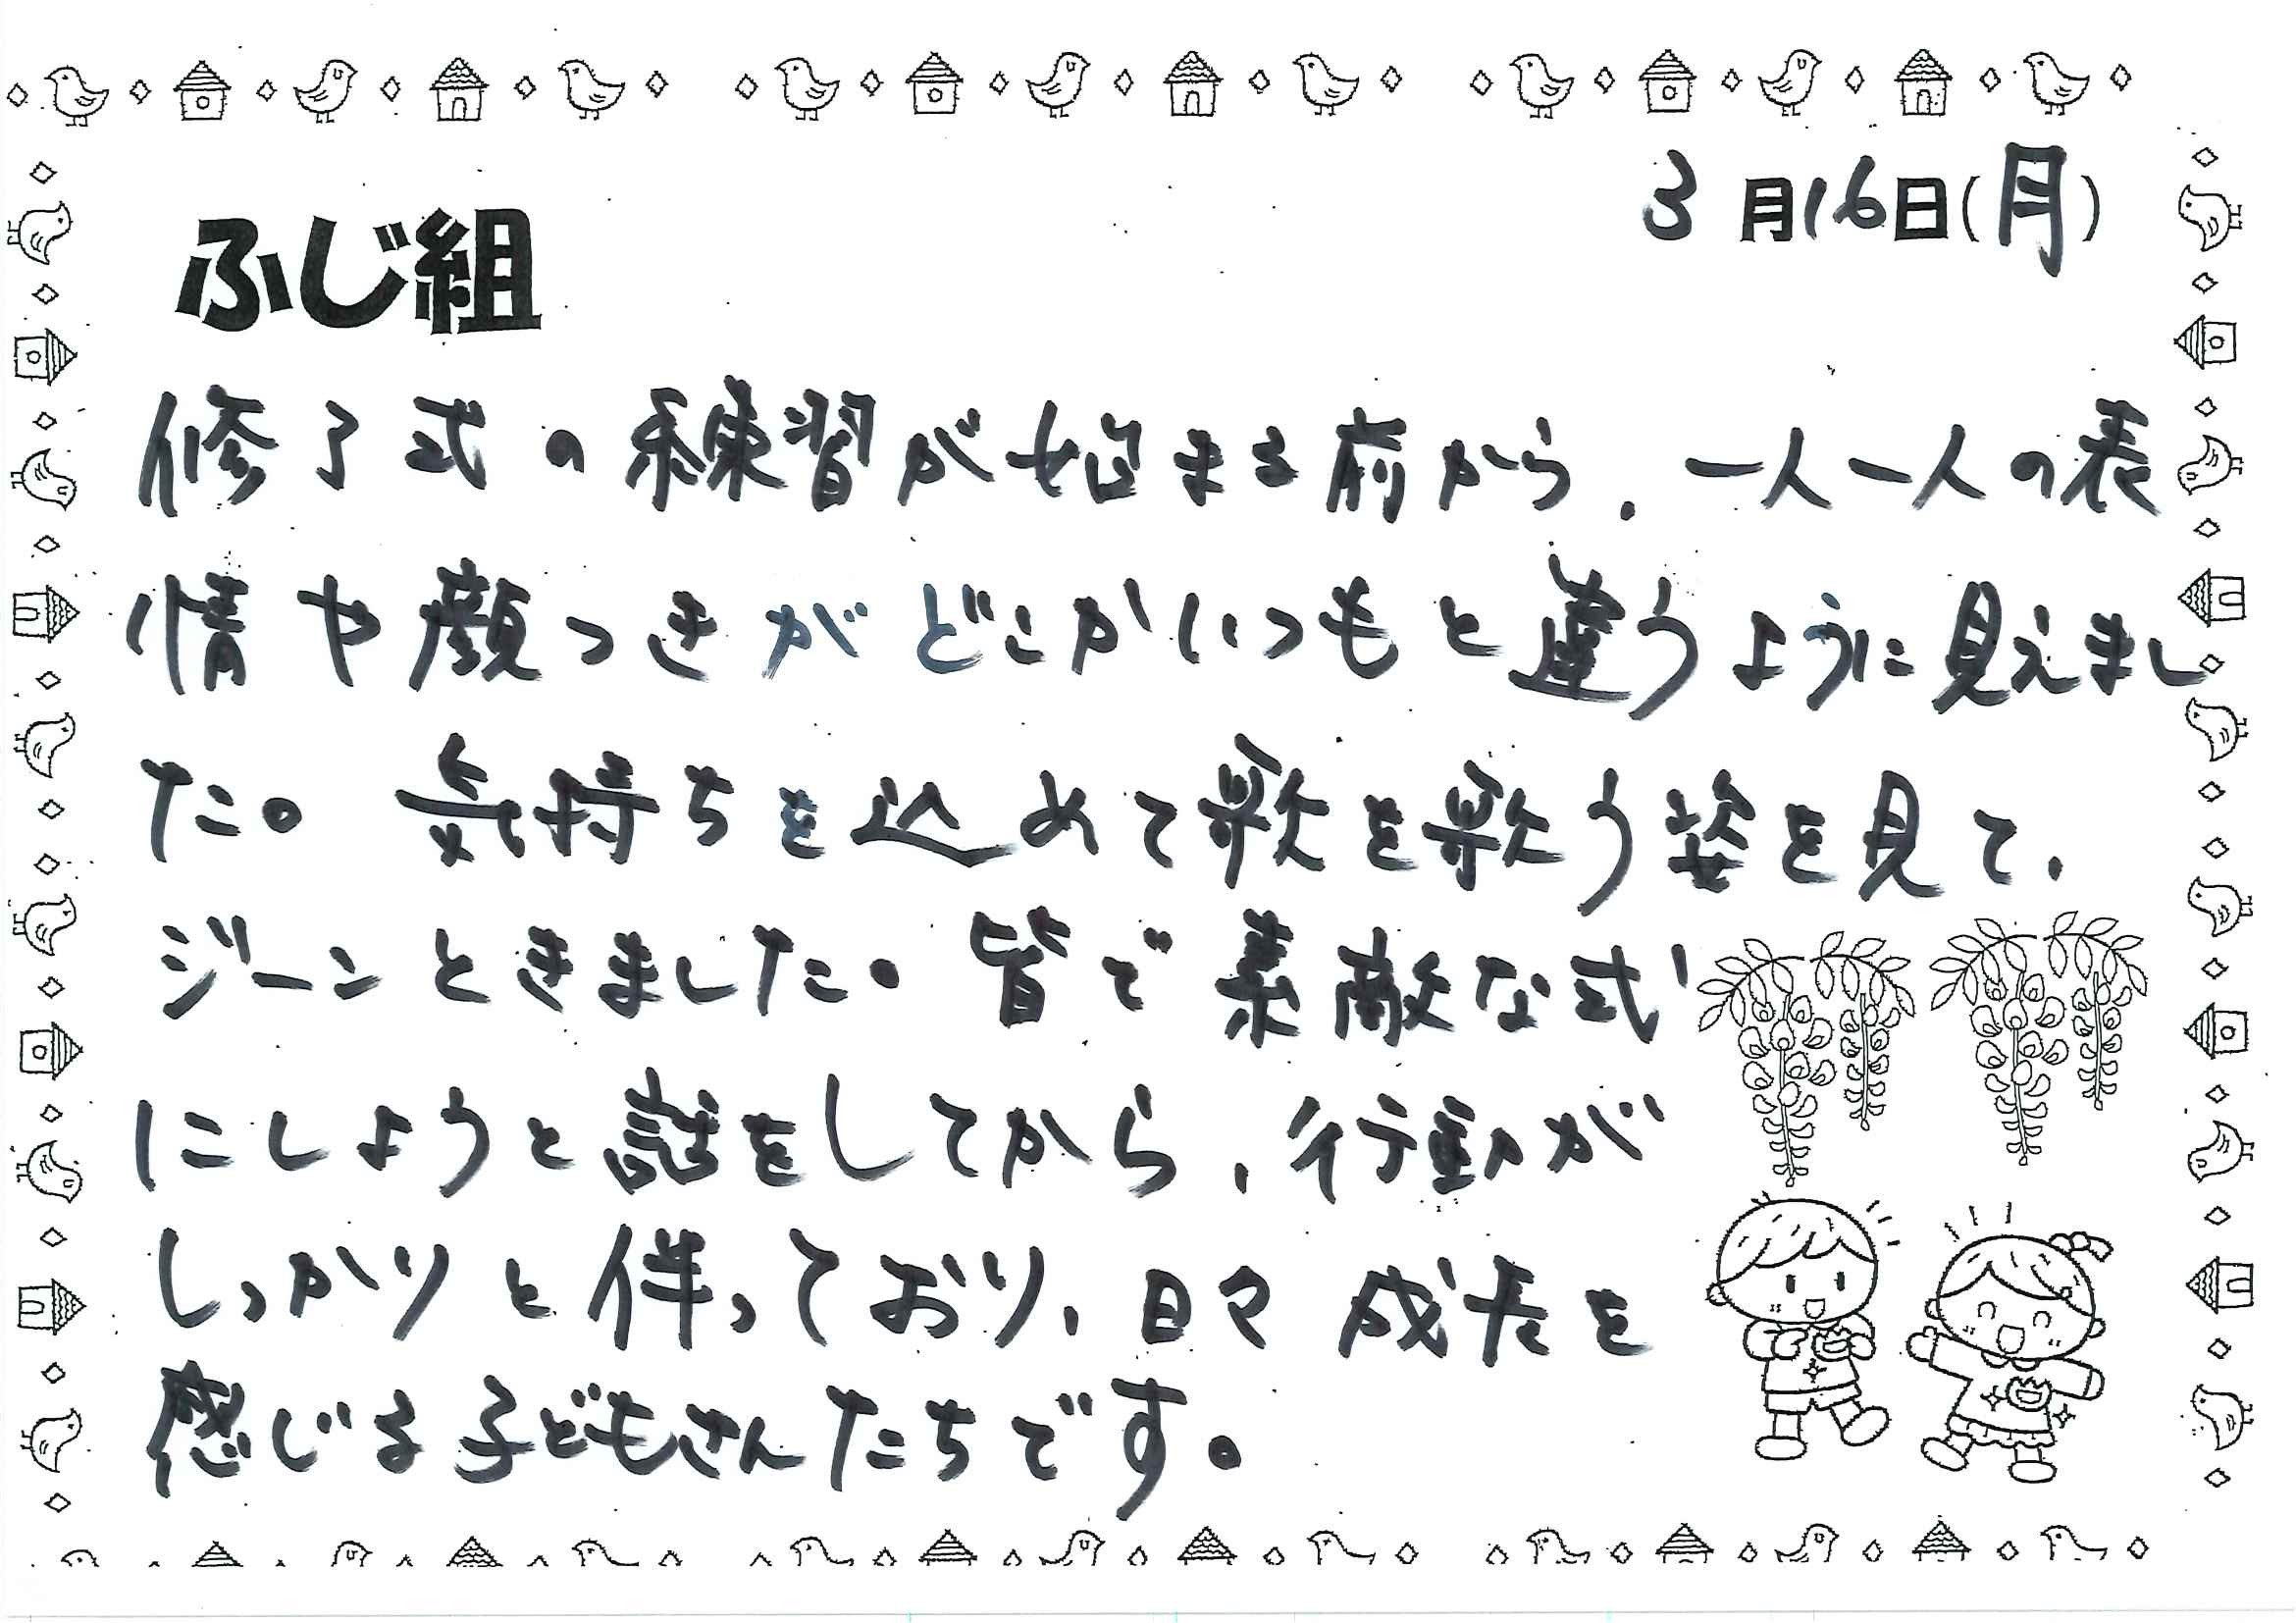 3月16日(月)
ふじ組
修了式の練習が始まる前から、一人一人の表
情や顔つきがどこかいつもと違うように見えまし
た。気持ちを込めて歌を歌う姿を見て、
ジーンときました。皆で素敵な式
にしようと話をしてから、行動が
しっかりと伴っており、日々成長を
感じる子どもさんたちです。